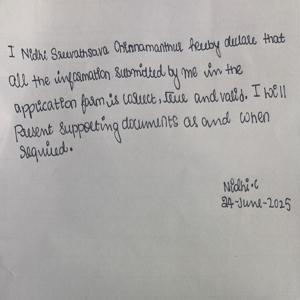 I Nidhi Sauvathsava Chinnamanthur hereby declare that
all the information submitted by me in the
application form is correct, true and valid. I will
Present supporting documents as and when
required.
Nidhi.C
24-June-2025